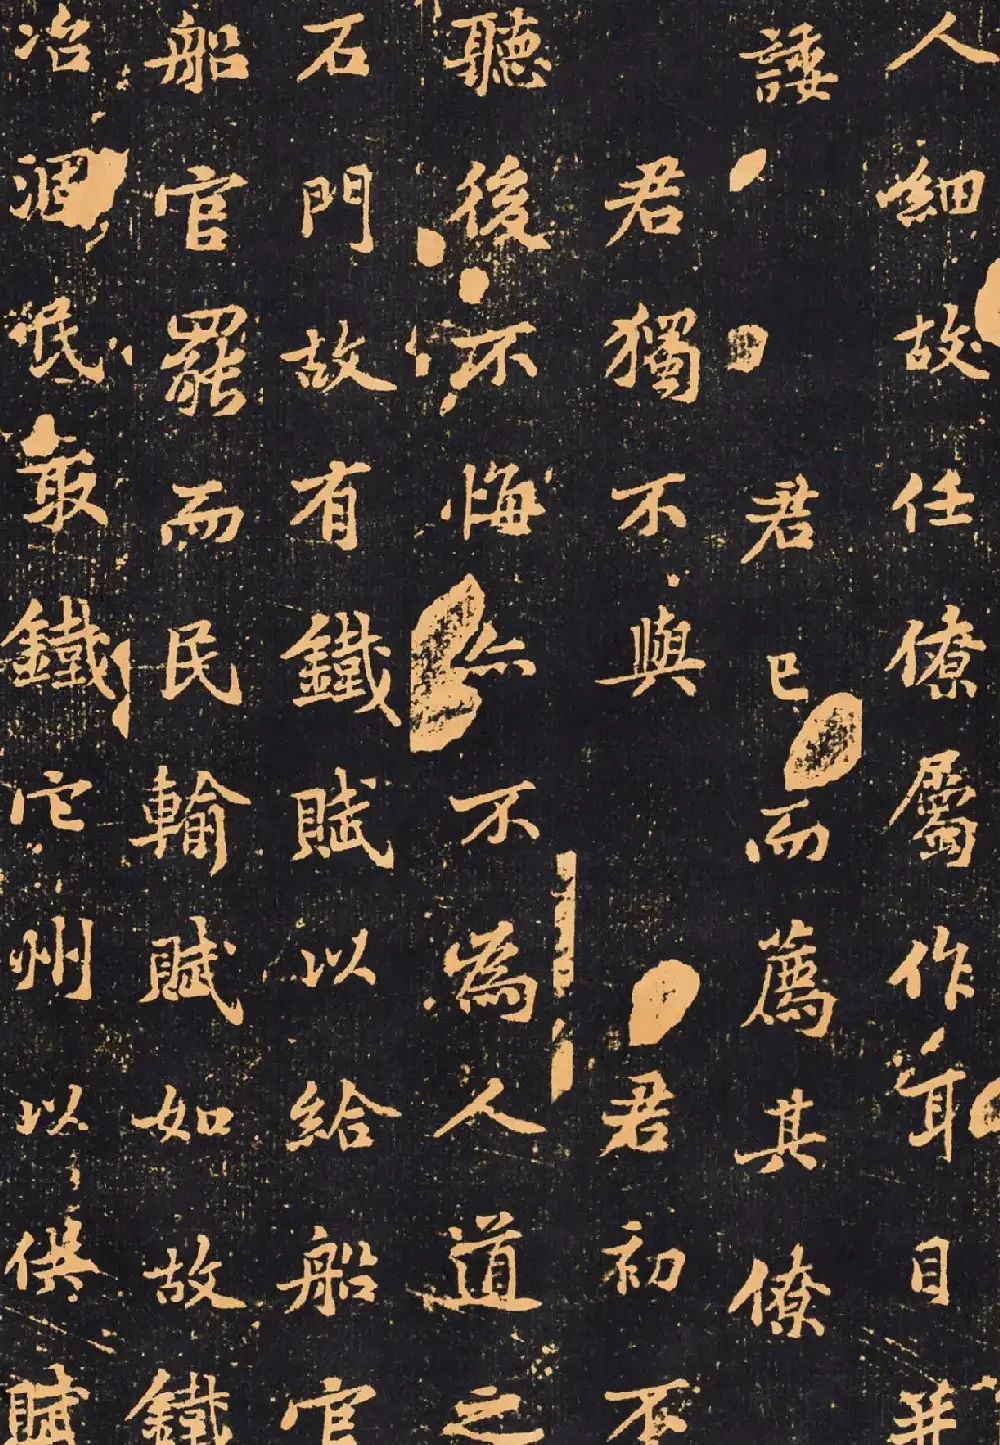 人細故任僚屬作耳目并
君已而薦其僚
君獨不與君初不
聽後不悔亦不為人道之
石門故有鐵賦以給船官
船官罷而民輸賦如故鐵
冶涸民冣鐵它州以供賦